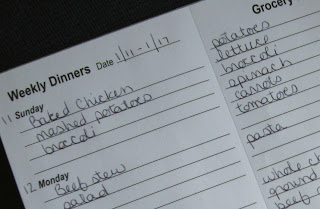 Weekly Dinners Date 1/11-1/17
11 Sunday
Baked Chicken
mashed potatoes
broccoli
12 Monday
Beef stew
salad
Grocery
potatoes
lettuce
broccoli
spinach
carrots
tomatoes
pasta
whole
ground
beef